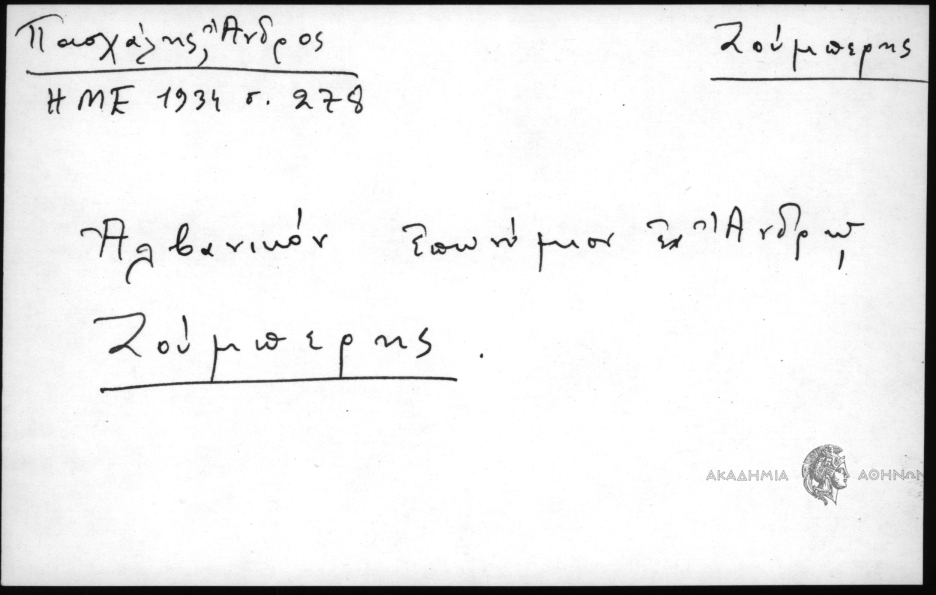 Πασχάλης, Ἄνδρος
Ζούμπερης
ΗΜΕ 1934 σ. 278
Ἀλβανικόν Ἐπωνύμιον ἐν Ἄνδρῳ,
Ζούμπερης.
ΑΚΑΔΗΜΙΑ ΑΘΗΝΩΝ